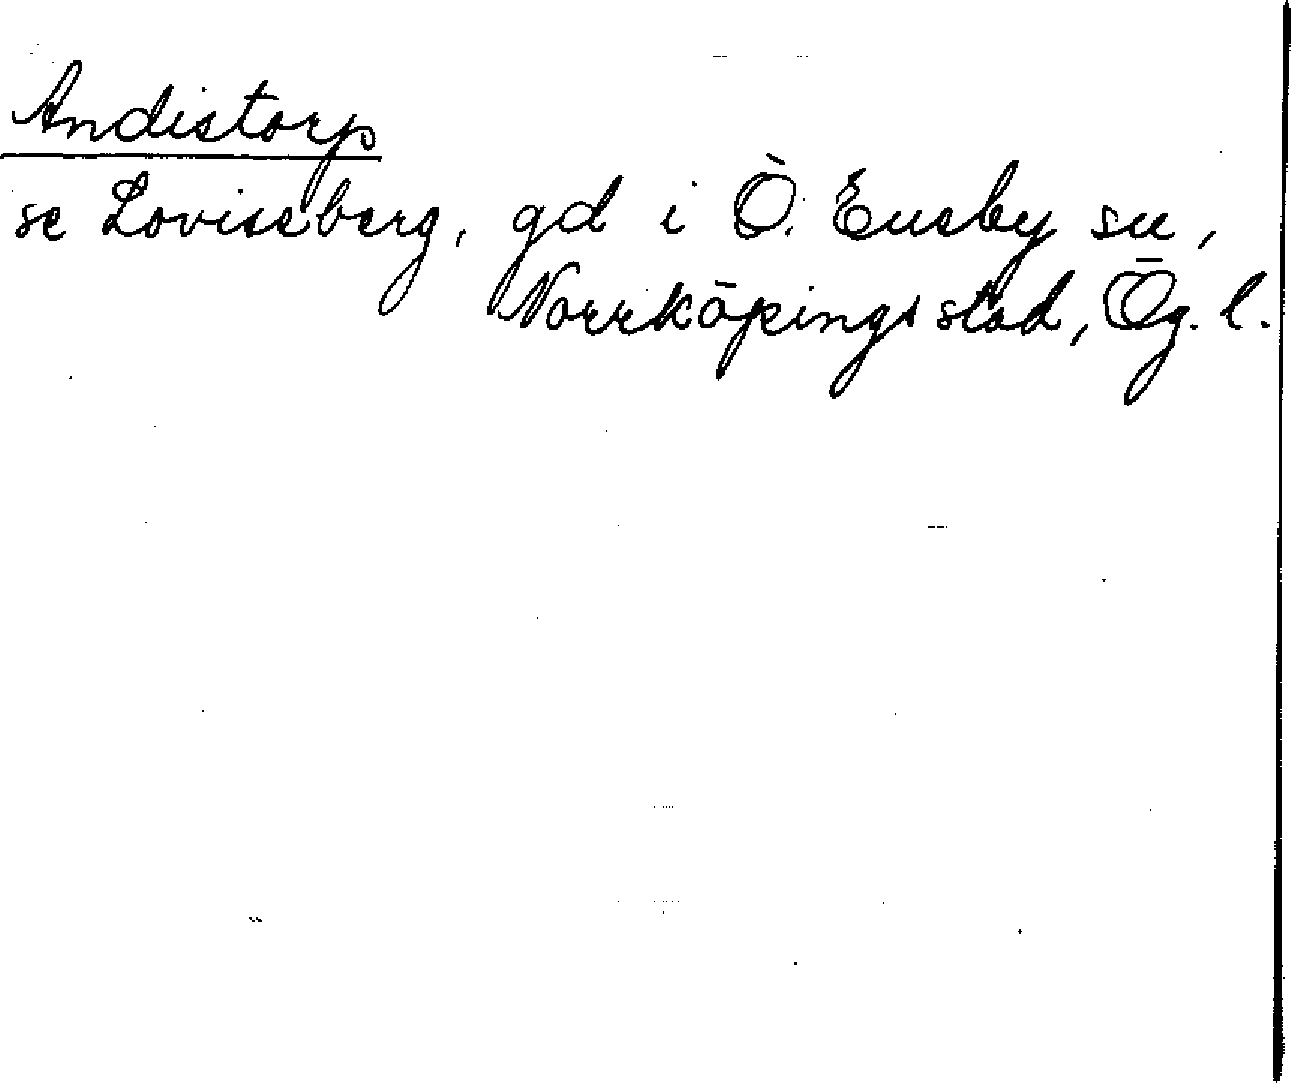 Andistorp
se Loviseberg, gd i Ö. Eneby sn,
Norrköpings stad, Ög. l.